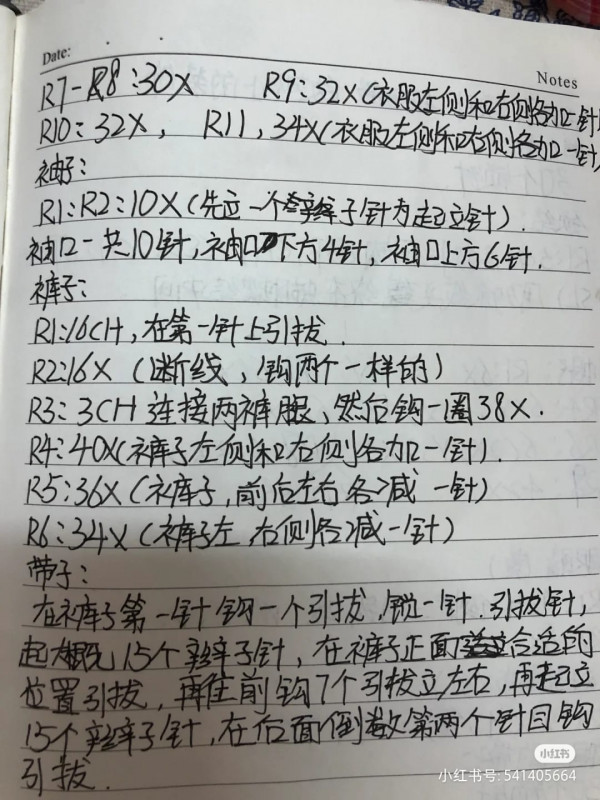 Date:
Notes
R7-R8:30X R9:32X(衣服左侧和右侧各加一针)
R10:32X, R11,34X(衣服左侧和右侧各加一针)
袖子:
R1:R2:10X(先立一个辫子针为起立针).
袖口一共10针,袖口下方4针,袖口上方6针.
裤子:
R1:16CH,在第一针上引拔.
R2:16X(断线,钩两个一样的)
R3:3CH连接两裤腿、然后钩一圈38X.
R4:40X(裤子左侧和右侧各加一针).
R5:36X(裤子,前后左右各减一针)
R6:34X(裤子左,右侧各减一针)
带子:
在裤子第一针钩一个引拔,锁一针.引拔针,
起大概15个辫子针,在裤子正面合适的
位置引拔,再往前钩7个引拔立左右,再起立
15个辫子针,在后面倒数第两个针目钩
引拔.
小红书
小红书号:541405664